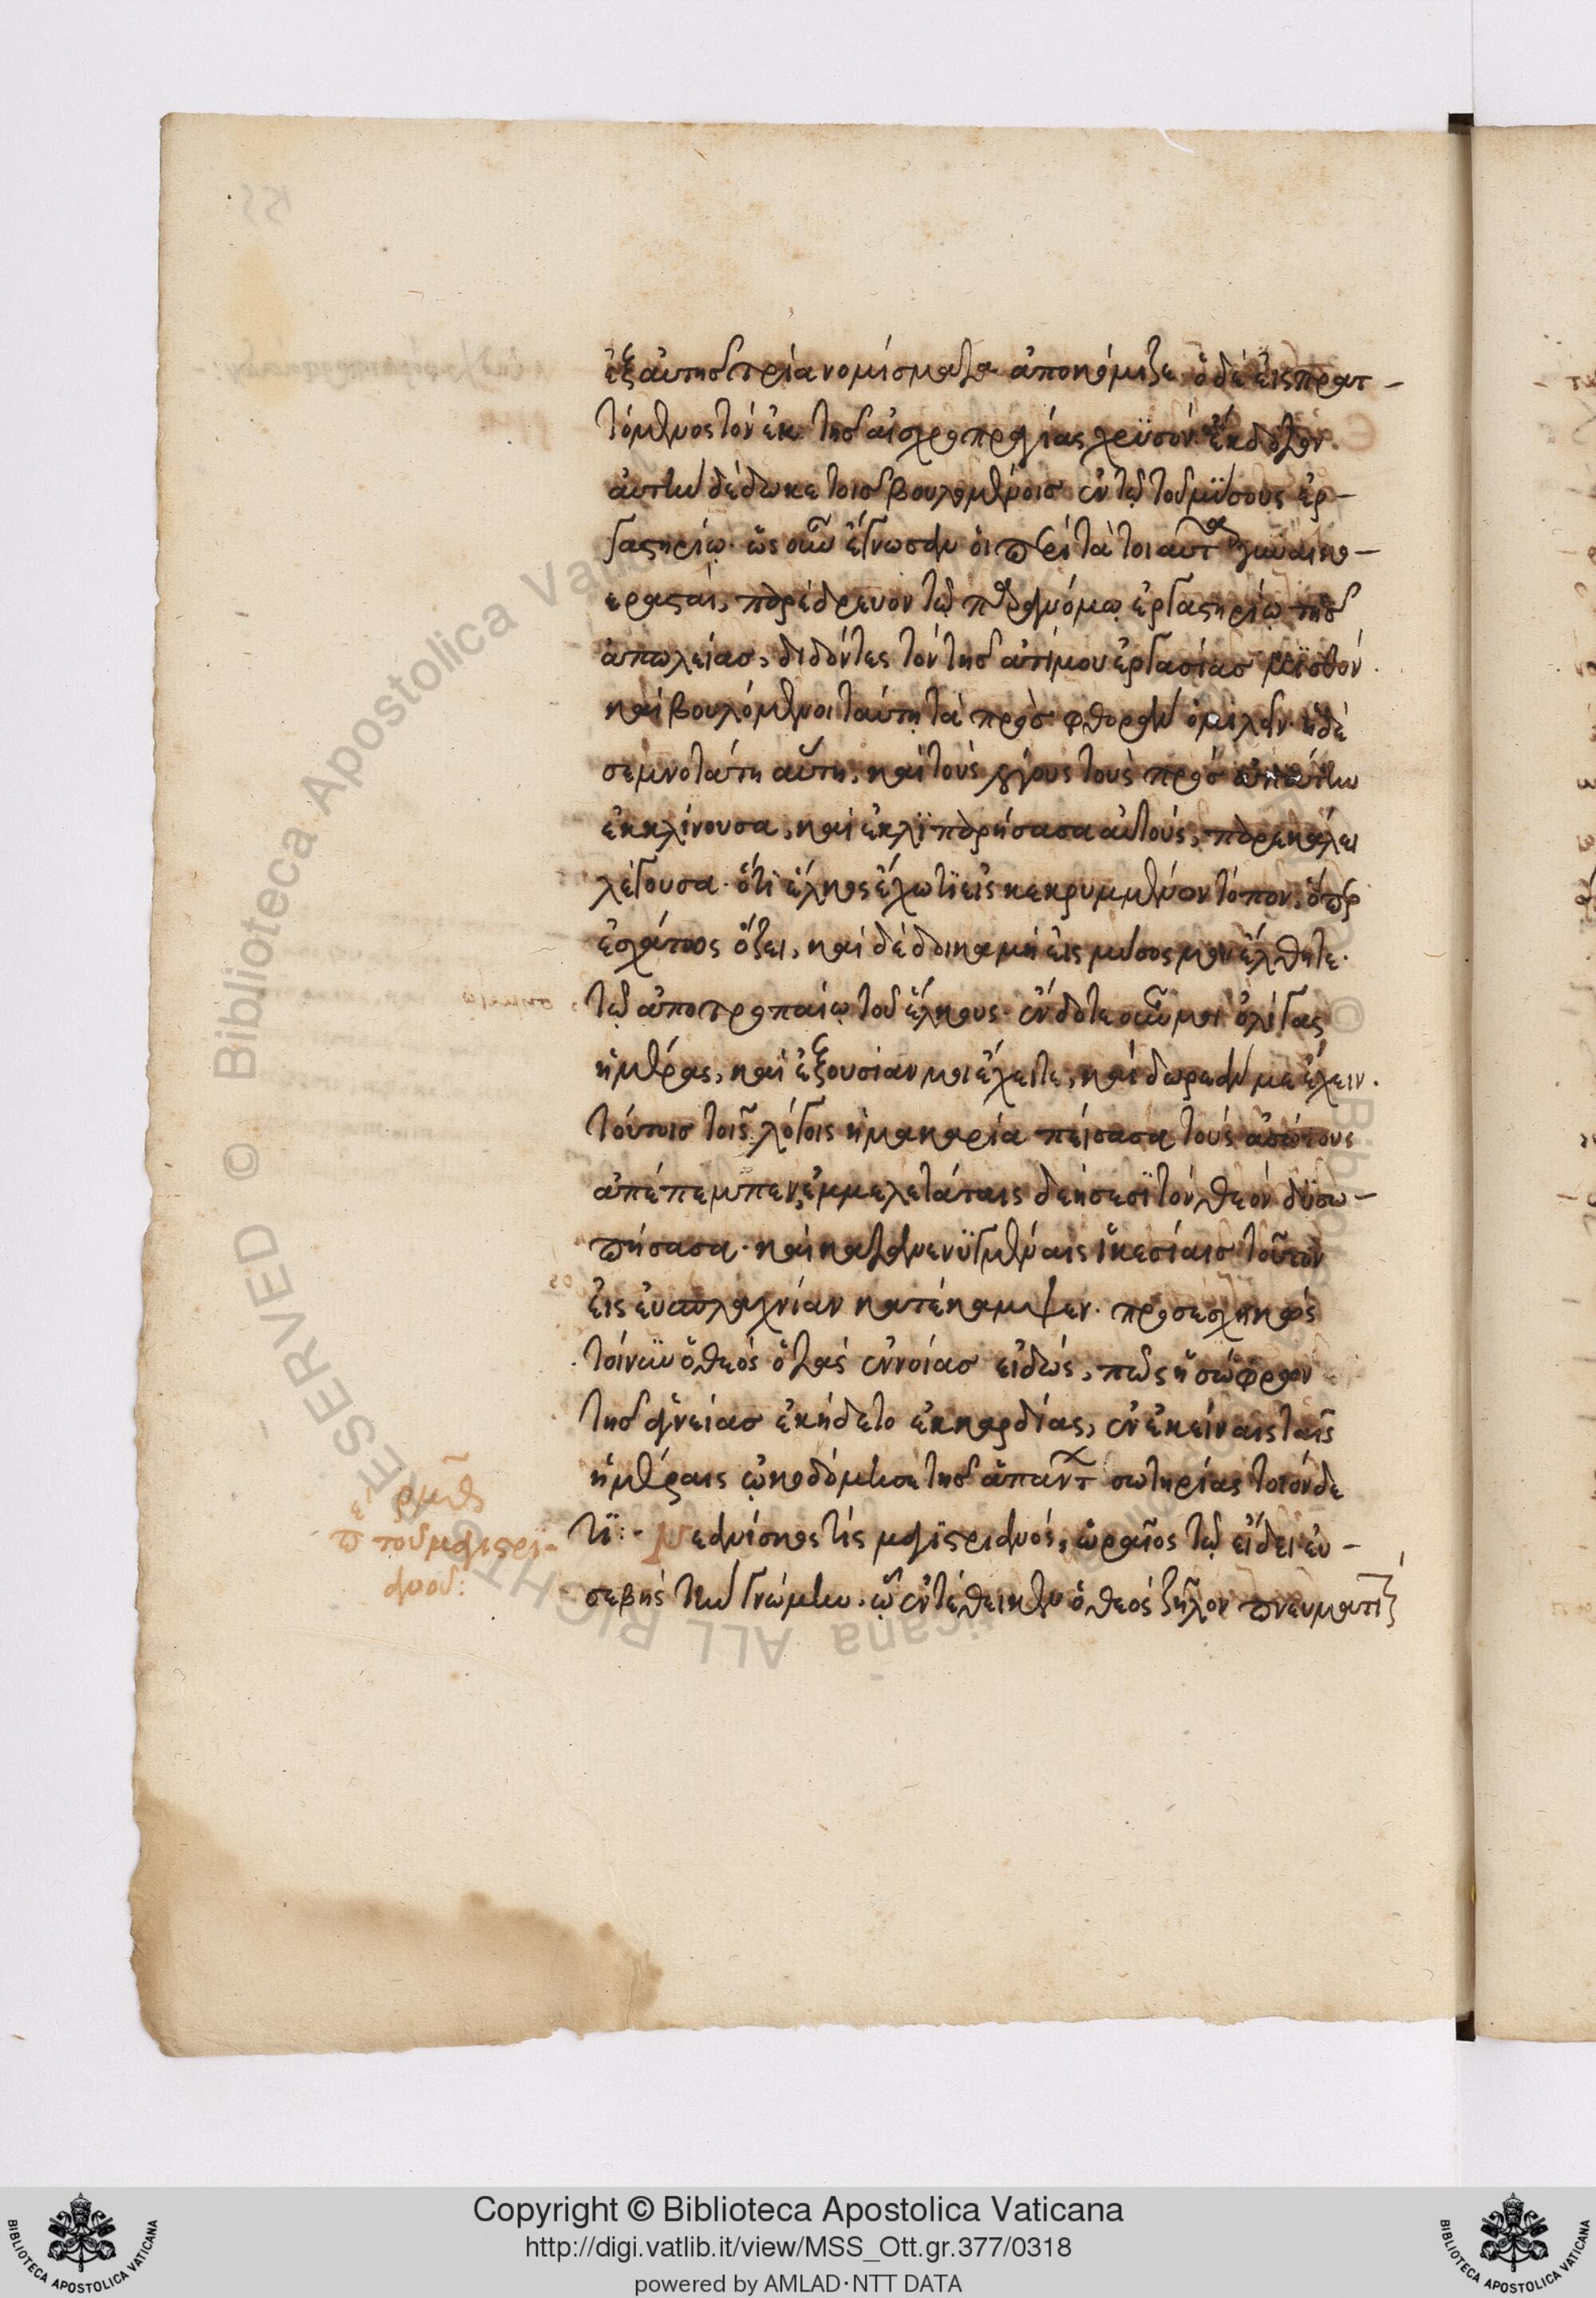 ἐξ αὐτῆς τρία νομίσματα ἀποκόμιζε· ὁ δὲ εἰσπρατ-
τόμενος τὸν ἐκ τῆς αἰσχροπραγίας χρυσὸν ἔκδοτον
αὐτὴν δέδωκε τοῖς βουλομένοις ἐν τῷ τοῦ μύσους ἐρ-
γαστηρίῳ· ὡς οὖν ἔγνωσαν οἱ περὶ τὰ τοιαῦτα γυναικο-
ερασταί, παρέδρευον τῷ παρανόμῳ ἐργαστηρίῳ τῆς
ἀπωλείας, διδόντες τὸν τῆς ἀτίμου ἐργασίας μισθόν
καὶ βουλόμενοι ταύτῃ τὰ πρὸς φθορὰν ὁμιλεῖν· ἡ δὲ
σεμνοτάτη αὕτη, καὶ τοὺς λόγους τοὺς πρὸς ἀπάτην
ἐκκλίνουσα, καὶ ἐκλιπαρήσασα αὐτούς, παρεκάλει
λέγουσα· ὅτι ἕλκος ἔχω τι εἰς κεκρυμμένον τόπον, ὅπερ
ἐσχάτως ὄζει, καὶ δέδοικα μὴ εἰς μῖσός μου ἔλθητε
τῷ ἀποτροπαίῳ τοῦ ἕλκους· ἔνδοτε οὖν μοι ὀλίγας
ἡμέρας, καὶ ἐξουσίαν μου ἔχετε, καὶ δωρεάν με ἔχειν.
τούτοις τοῖς λόγοις ἡ μακαρία πείσασα τοὺς ἀσώτους
ἀπέπεμπεν, ἐμμελετάταις δεήσεσι τὸν θεὸν δυσω-
πήσασα· καὶ κατανενυγμέναις ἱκεσίαις τοῦτον
εἰς εὐσπλαγχνίαν κατέκαμψεν· προσεσχηκὼς
τοίνυν ὁ θεὸς ὁ τὰς ἐννοίας εἰδώς, πῶς ἡ σώφρων
τῆς ἁγνείας ἐκήδετο ἐκ καρδίας, ἐν ἐκείναις ταῖς
ἡμέραις ᾠκοδόμησε τῆς ἁπάντων σωτηρίας τοιόνδε
τι:· Νεανίσκος τὶς μαγιστριανός, ὡραῖος τῷ εἴδει εὐ-
σεβὴς τὴν γνώμην, ᾧ ἐντέθεικεν ὁ θεὸς ζῆλον πνευματι
ρμθ
περὶ τοῦ μαγιστρι-
ανοῦ: